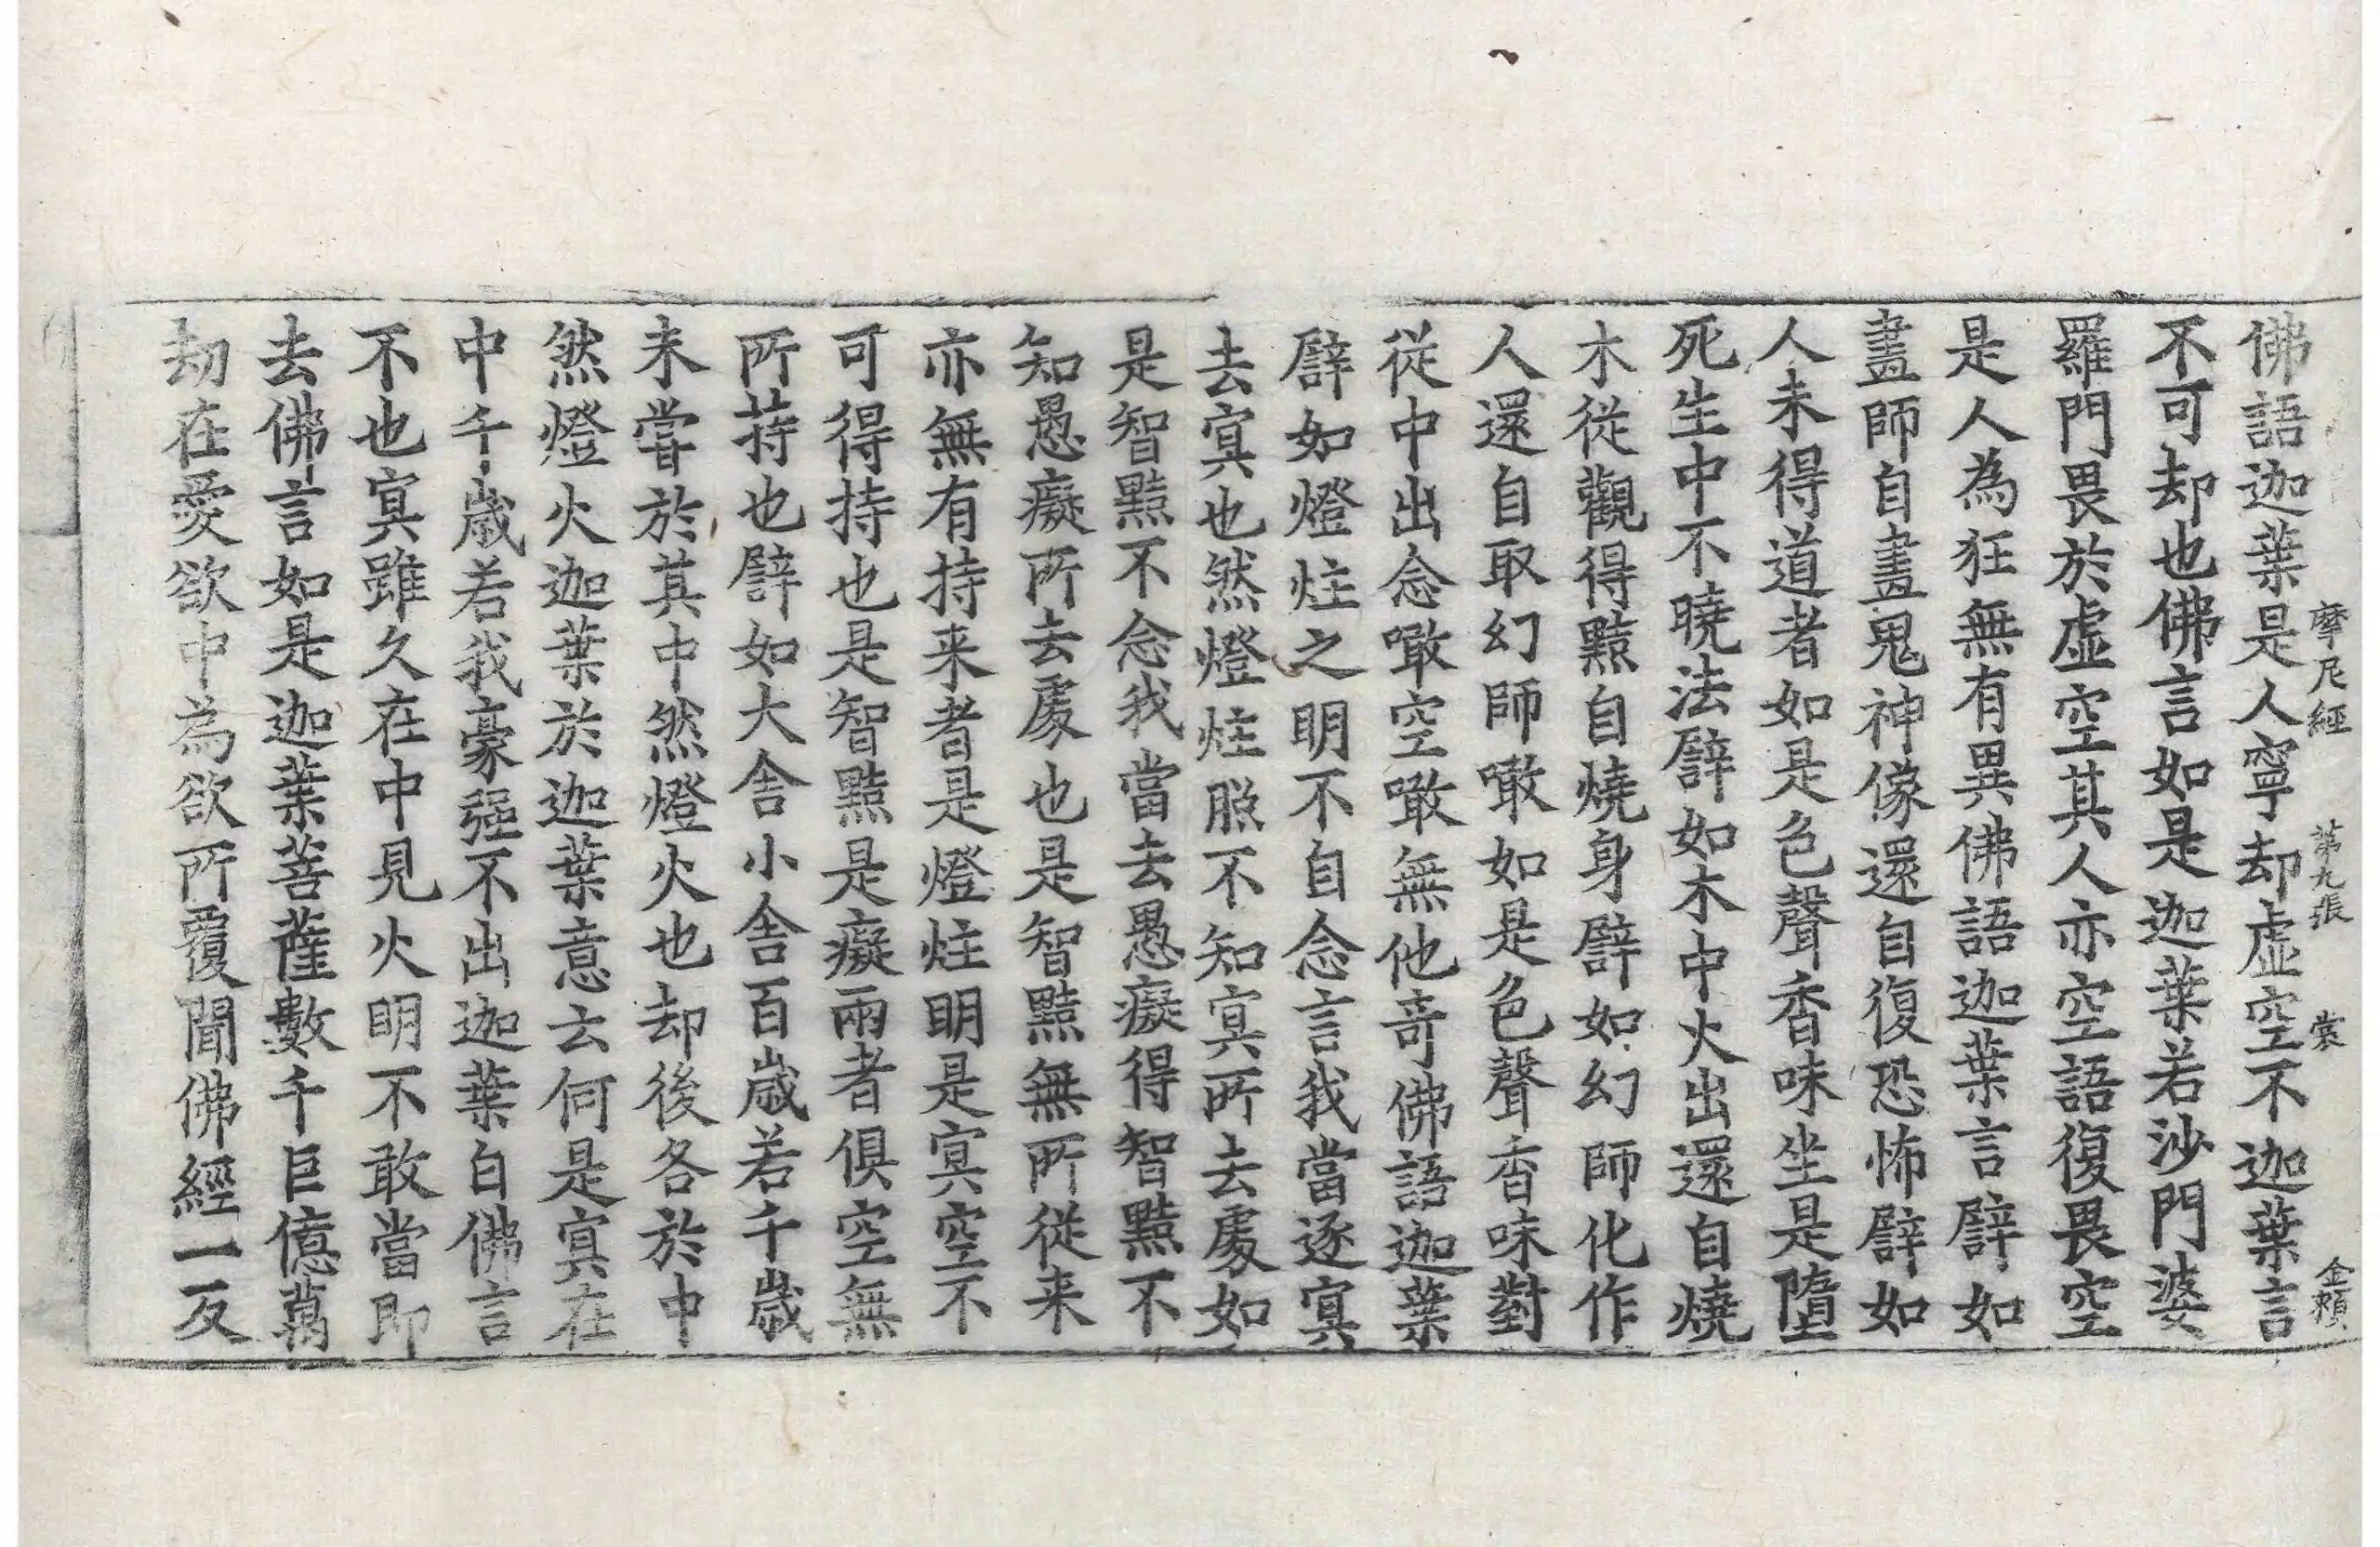 摩尼經 第九張 裳 金賴
佛語迦葉是人寧却虛空不迦葉言
不可却也佛言如是迦葉若沙門婆
羅門畏於虛空其人亦空語復畏空
是人為狂無有異佛語迦葉言譬如
畫師自畫鬼神像還自復恐怖譬如
人未得道者如是色聲香味坐是墮
死生中不曉法譬如木中火出還自燒
木從觀得黠自燒身譬如幻師化作
人還自取幻師噉如是色聲香味對
從中出念噉空噉無他奇佛語迦葉
譬如燈炷之明不自念言我當逐冥
去冥也然燈炷照不知冥所去處如
是智黠不念我當去愚癡得智黠不
知愚癡所去處也是智黠無所從来
亦無有持来者是燈炷明是冥空不
可得持也是智黠是癡兩者俱空無
所持也譬如大舍小舍百歲若千歲
未嘗於其中然燈火也却後各於中
然燈火迦葉於迦葉意云何是冥在
中千歲若我豪强不出迦葉白佛言
不也冥雖久在中見火明不敢當即
去佛言如是迦葉菩薩數千巨億萬
劫在愛欲中為欲所覆聞佛經一反